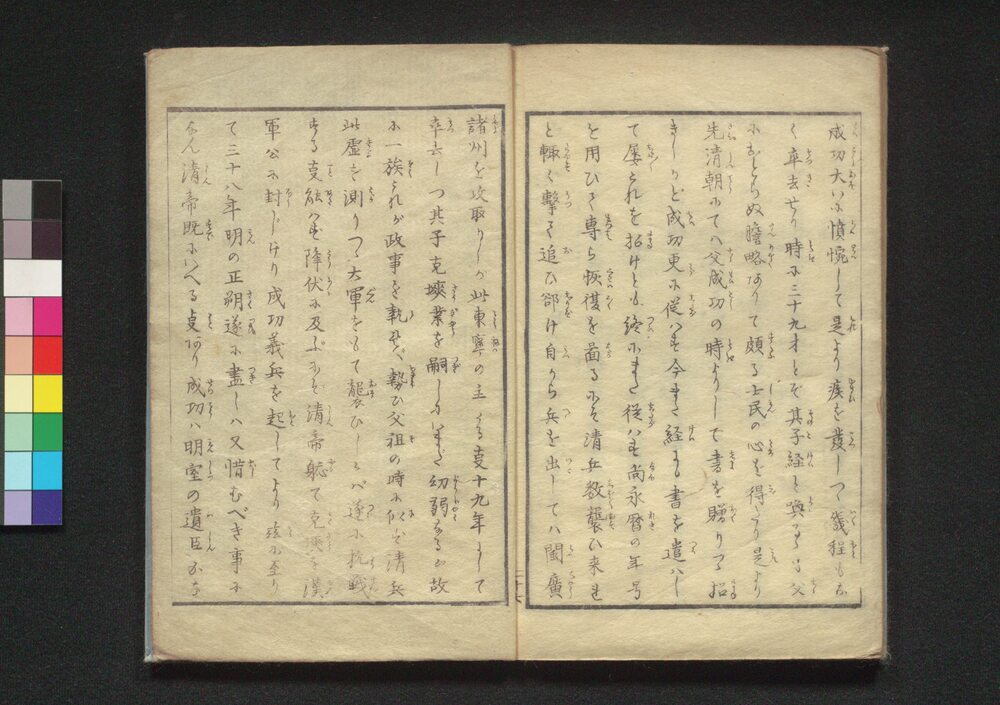 成功大いに憤惋して是より疾を發しつゝ幾程もな
く卒去せり時に三十九才とぞ其子経と
におとらぬ膽略ありて頗る士民の心を得たり是より
先清朝にては父成功の時よりして書を贈りつゝ招
きしかど成功更に従はず今また経にも書を遣はし
て屡これを招けども終にまた従はず尚永暦の年号
を用ひて専ら恢復を圖るにぞ清兵数襲ひ来れ
ど輙く撃て追ひ郤け自から兵を出しては閩廣
諸州を攻取りしが此東寧の主たる事十九年にして
卒去しつ其子克塽業を嗣しかいまだ幼弱なるが故
に一族これが政事を執れば勢ひ父祖の時に似ず清兵
此虚を測りつゝ大軍をもて襲ひしかば遂に抗戦
する事能はず降伏に及ぶにぞ清帝躬て克塽を漢
軍公に封じけり成功義兵を起してより茲に至り
て三十八年明の正朔遂に盡しは又惜むべき事に
なん清帝既にいへる事あり成功は明室の遺臣にな